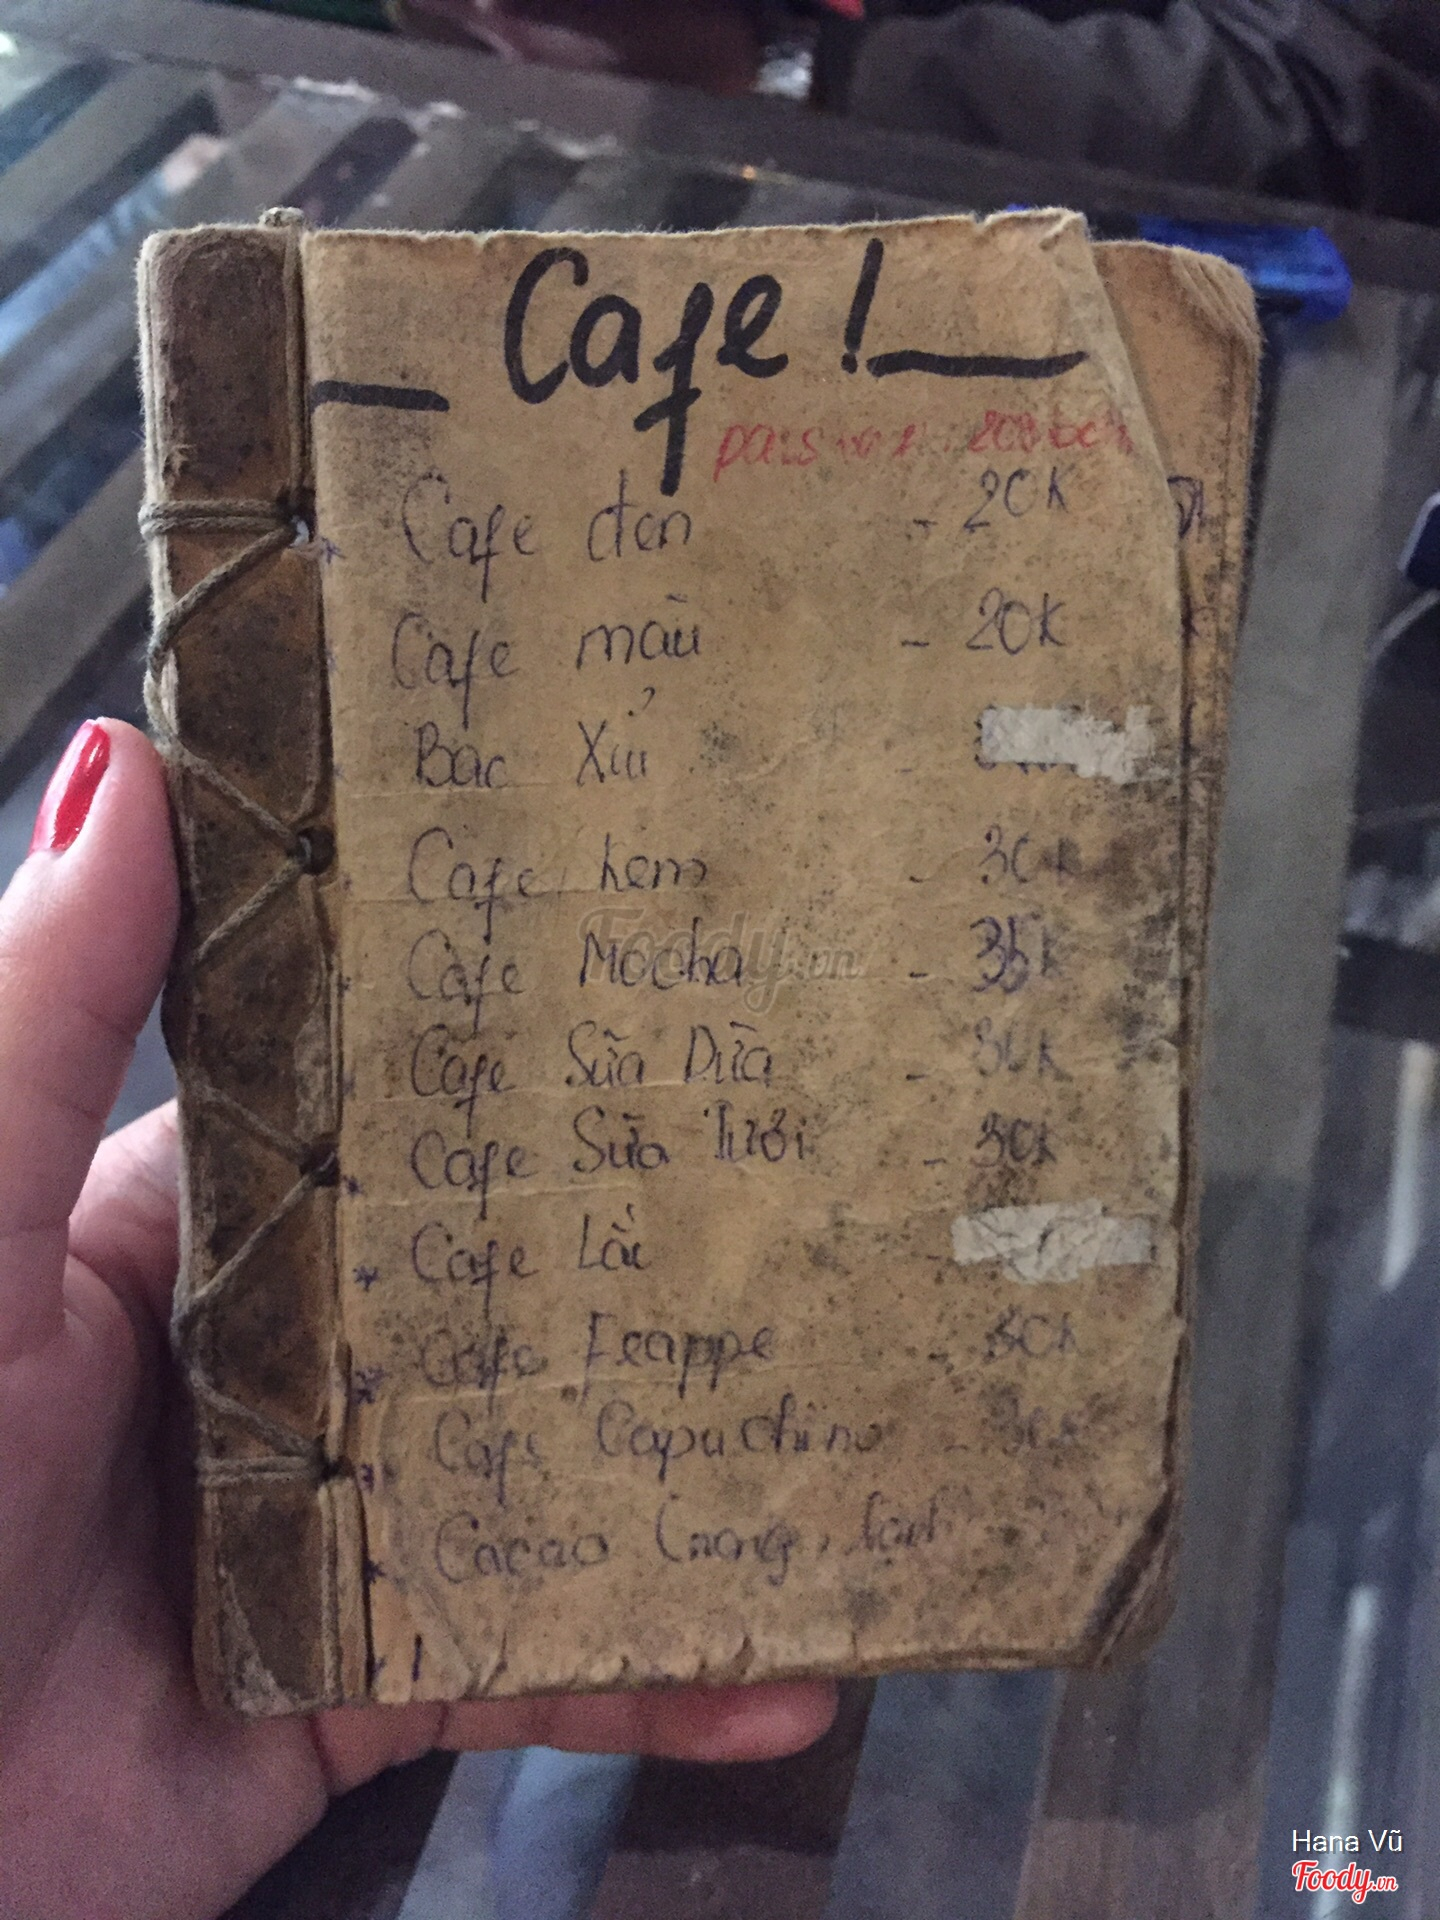 Cafe!
Cafe đen - 20K
Cafe mầu - 20K
Bac Xỉu -
Cafe kem - 30K
Cafe Mocha - 35K
Cafe Sữa Dừa - 30K
Cafe Sữa Tươi - 30K
Cafe Lắc -
Cafe Frappe - 30K
Cafe Capuchino - 30K
Cacao (nóng, lạnh
Foody.vn
Hana Vũ
Foody.vn